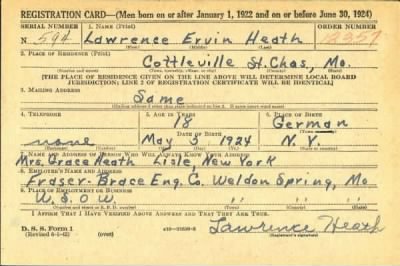 REGISTRATION CARD—(Men born on or after January 1, 1922 and on or before June 30, 1924)
SERIAL NUMBER 1. NAME (Print) ORDER NUMBER
N 594 Lawrence Ervin Heath 12357
(First) (Middle) (Last)
2. PLACE OF RESIDENCE (Print)
Cottleville St. Chas, Mo.
(Number and street) (Town, township, village, or city) (County) (State)
[THE PLACE OF RESIDENCE GIVEN ON THE LINE ABOVE WILL DETERMINE LOCAL BOARD
JURISDICTION; LINE 2 OF REGISTRATION CERTIFICATE WILL BE IDENTICAL]
3. MAILING ADDRESS
Same
4. TELEPHONE 5. AGE IN YEARS 6. PLACE OF BIRTH
18 German
DATE OF BIRTH
none May 5 1924 N.Y.
(Exchange) (Number) (Mo.) (Day) (Yr.) (State or country)
7. NAME AND ADDRESS OF PERSON WHO WILL ALWAYS KNOW YOUR ADDRESS
Mrs. Grace Heath Lisle, New York
8. EMPLOYER'S NAME AND ADDRESS
Fraser-Brace Eng. Co. Weldon Spring, Mo
9. PLACE OF EMPLOYMENT OR BUSINESS
W.S.O.W. " " "
(Number and street or R. F. D. number) (Town) (County) (State)
I AFFIRM THAT I HAVE VERIFIED ABOVE ANSWERS AND THAT THEY ARE TRUE.
D. S. S. Form 1
(Revised 6-1-42) (over) Lawrence Heath
(Registrant's signature)